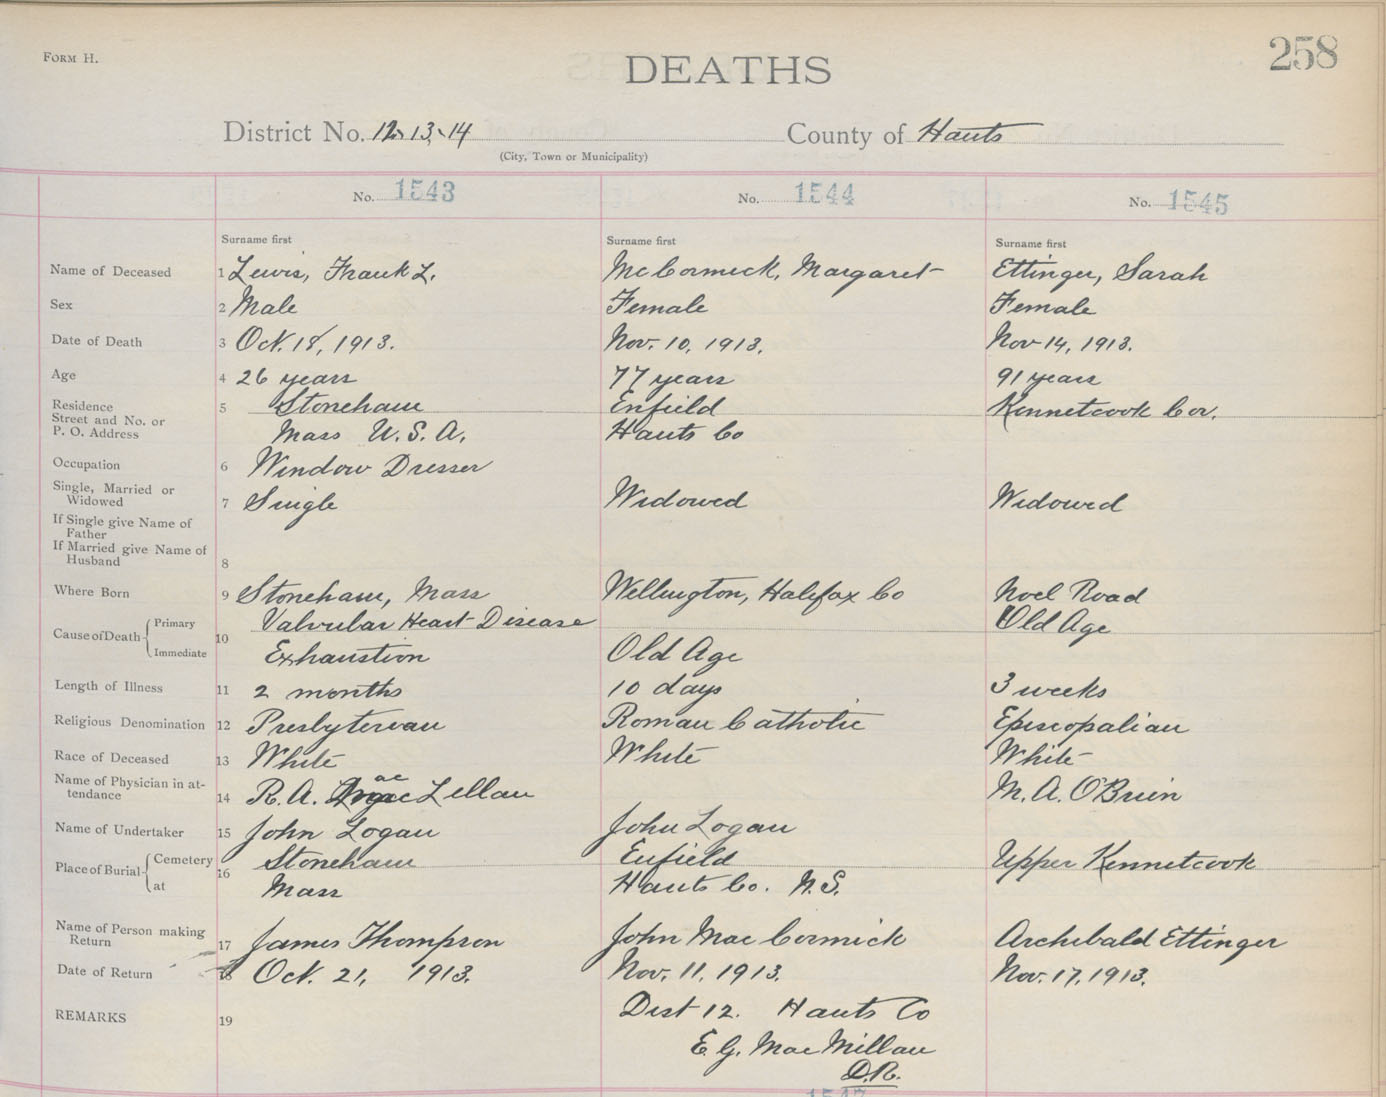 FORM H.
DEATHS
258
District No. 12, 13, 14 County of Hants
(City, Town or Municipality)
No. 1543 No. 1544 No. 1545
Surname first Surname first Surname first
Name of Deceased 1 Lewis, Frank L. McCormick, Margaret Ettinger, Sarah
Sex 2 Male Female Female
Date of Death 3 Oct. 18, 1913. Nov. 10, 1913. Nov 14, 1913.
Age 4 26 years 77 years 91 years
Residence 5 Stoneham Enfield Kennetcook Cor.
Street and No. or
P. O. Address Mass U. S. A. Hants Co
Occupation 6 Window Dresser
Single, Married or
Widowed 7 Single Widowed Widowed
If Single give Name of
Father
If Married give Name of
Husband 8
Where Born 9 Stoneham, Mass Wellington, Halifax Co Noel Road
Primary Valvular Heart Disease Old Age
Cause of Death 10
Immediate Exhaustion Old Age
Length of Illness 11 2 months 10 days 3 weeks
Religious Denomination 12 Presbyterian Roman Catholic Episcopalian
Race of Deceased 13 White White White
Name of Physician in at-
tendance 14 R. A. MacLellan M. A. O'Brien
Name of Undertaker 15 John Logan John Logan
Cemetery Stoneham Enfield Upper Kennetcook
Place of Burial 16
at Mass Hants Co. N. S.
Name of Person making
Return 17 James Thompson John MacCormick Archibald Ettinger
Date of Return 18 Oct. 21, 1913. Nov. 11, 1913. Nov. 17, 1913.
REMARKS 19 Dist 12. Hants Co
E. G. MacMillan
D.R.
1547